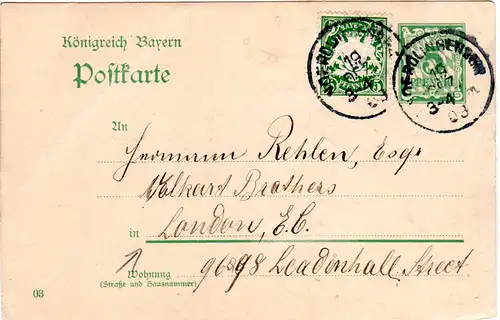 Königreich Bayern
Postkarte
An
Hermann Rehlen, Esqr
Volkart Brothers
in London, E.C.
Wohnung
(Straße und Hausnummer)
Leadenhall Street
03